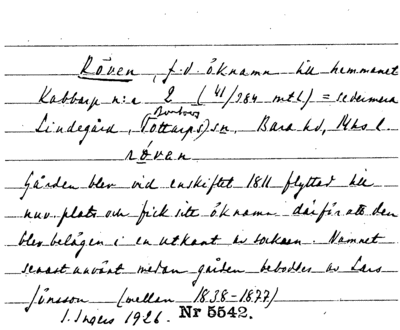 Röven, f.d. öknamn till hemmanet
Kabbarp n:a 2 (41/384 mtl.) = se dermera
Lindegård, (Tottarps) sn, Bara hd, Mhs l.
röven
Gården blev vid enskiftet 1811 flyttad till
nuv. plats och fick sitt öknamn därför att den
blev belägen i en utkant av socknen. Namnet
senast använt medan gården beboddes av Lars
Jönsson (mellan 1838-1877)
I. Ingers 1926. Nr 5542.